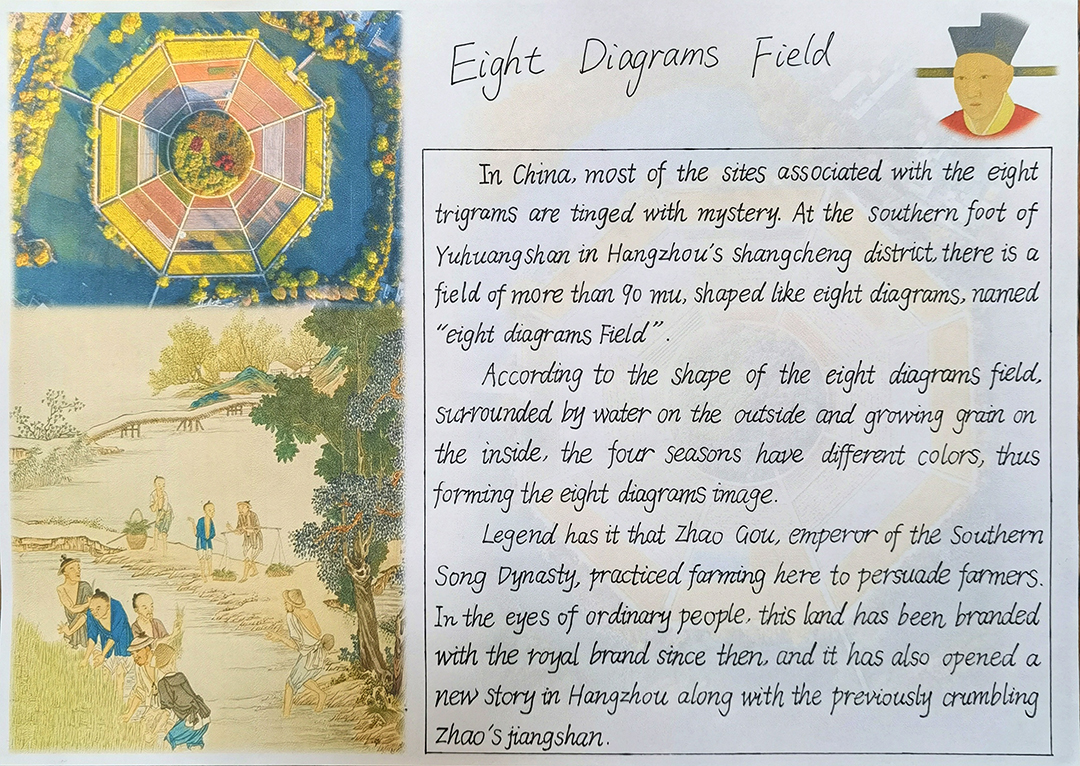 Eight Diagrams Field
In China, most of the sites associated with the eight
trigrams are tinged with mystery. At the southern foot of
Yuhuangshan in Hangzhou's shangcheng district, there is a
field of more than 90 mu, shaped like eight diagrams, named
"eight diagrams Field".
According to the shape of the eight diagrams field,
surrounded by water on the outside and growing grain on
the inside, the four seasons have different colors, thus
forming the eight diagrams image.
Legend has it that Zhao Gou, emperor of the Southern
Song Dynasty, practiced farming here to persuade farmers.
In the eyes of ordinary people, this land has been branded
with the royal brand since then, and it has also opened a
new story in Hangzhou along with the previously crumbling
Zhao's jiangshan.